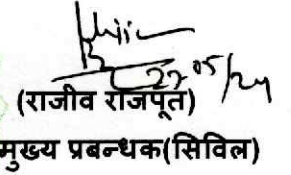 22/05/24
(राजीव राजपूत)
मुख्य प्रबन्धक(सिविल)